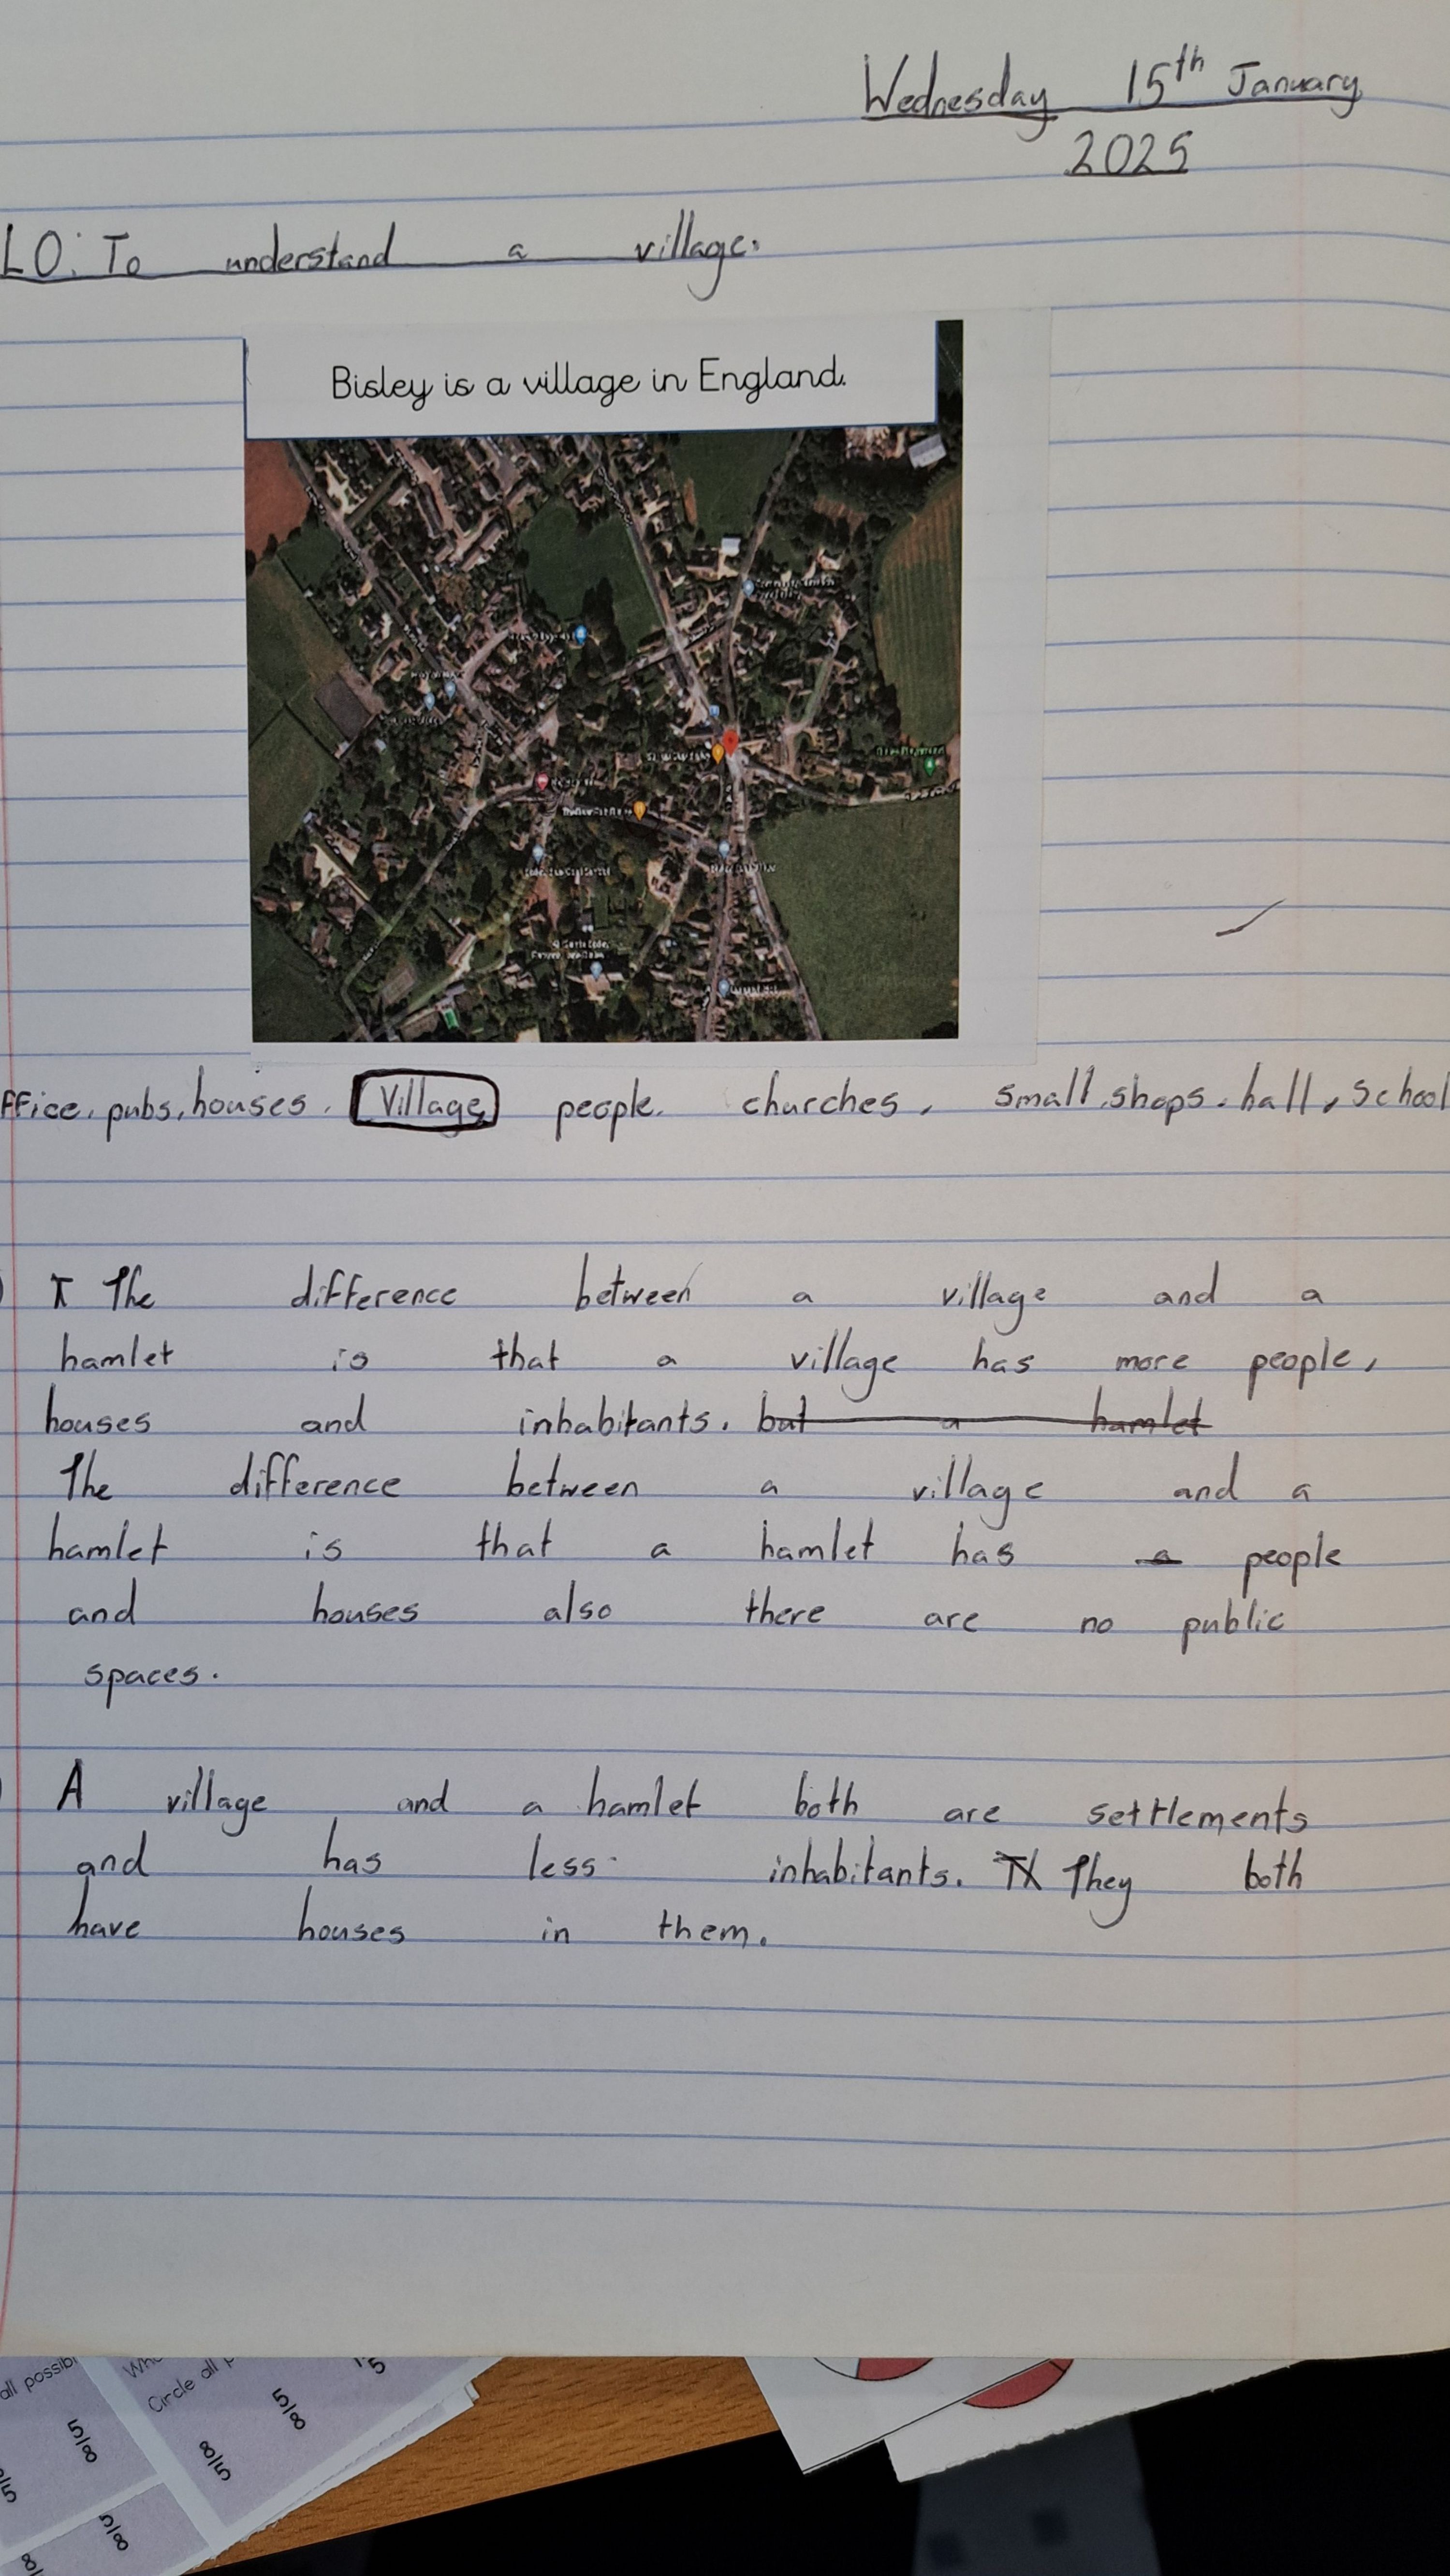 Wednesday 15th January
2025
LO: To understand a village.
Bisley is a village in England.
ffice, pubs, houses, Village people, churches, small shops, hall, school
The difference between a village and a
hamlet is that a village has more people,
houses and inhabitants. but a hamlet
The difference between a village and a
hamlet is that a hamlet has a people
and houses also there are no public
spaces.
A village and a hamlet both are settlements
and has less inhabitants. They both
have houses in them.
all possib
Circle all p
5/8
5/8
8/5
5/8